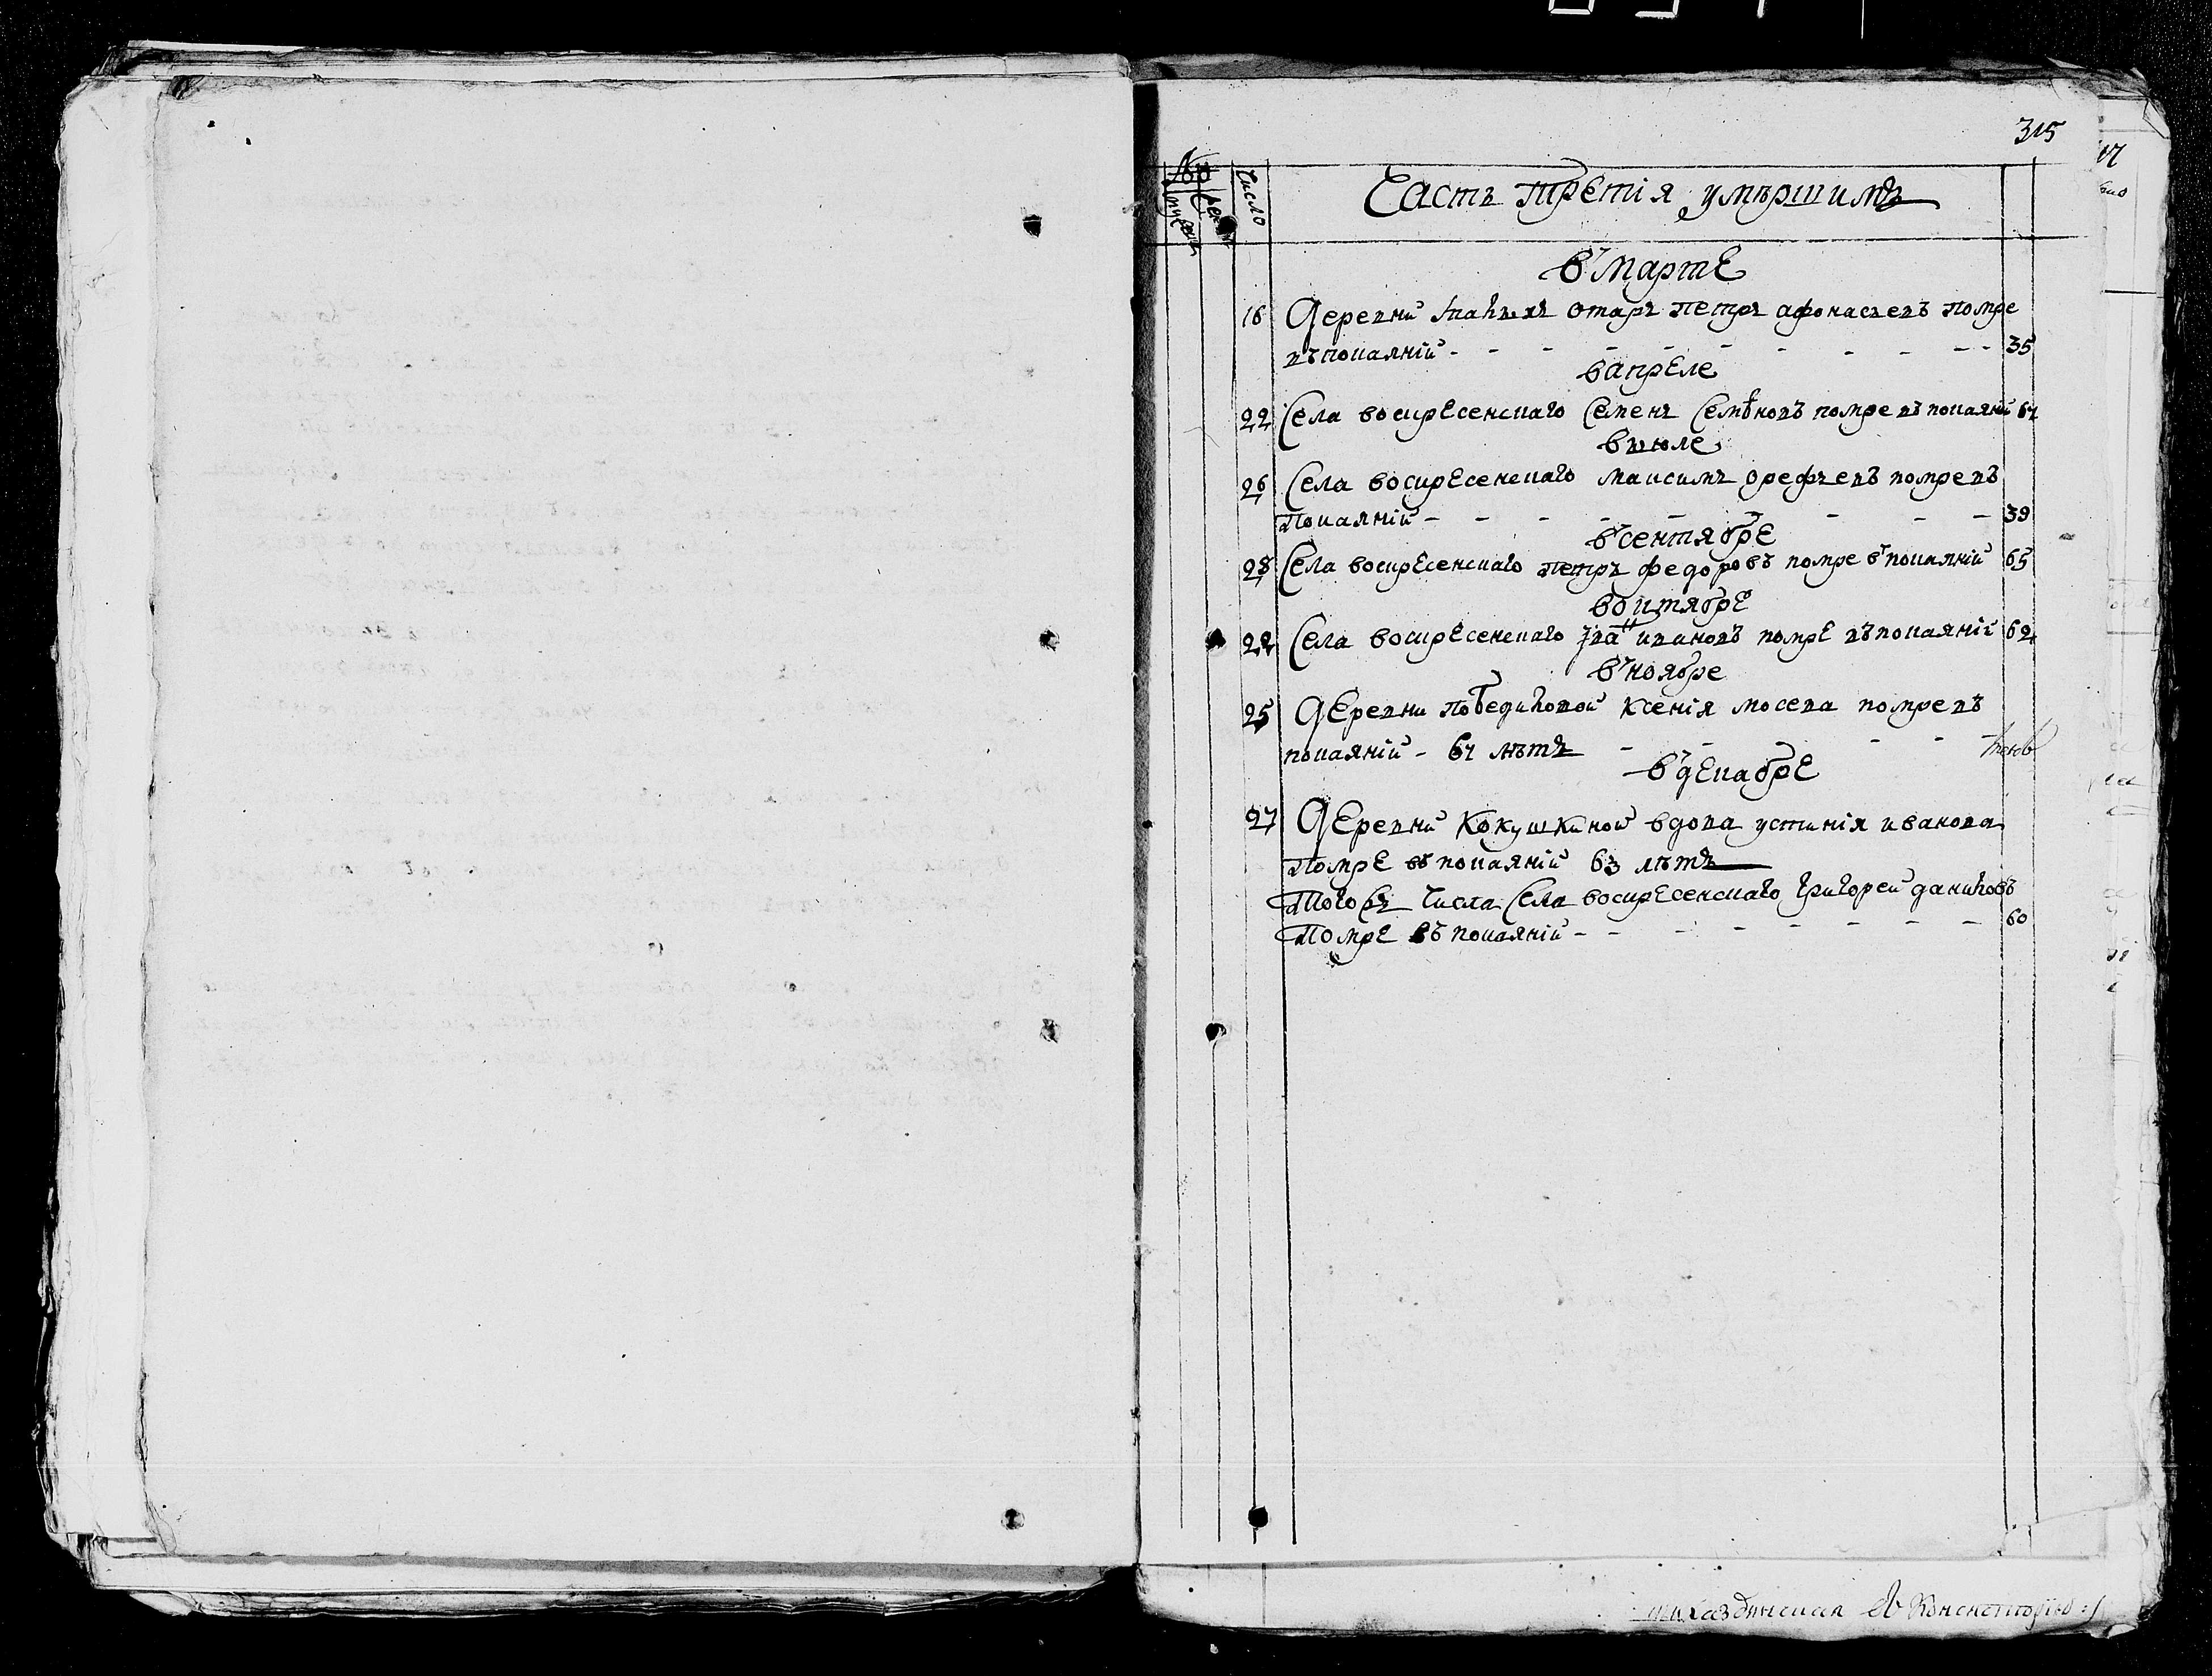 315
Число
Часть третія умѣршимъ
в марте
16 Деревни Отаръ Петръ афонасьевъ помре
въ покаяніи - - - - - - - - - - 35
в апреле
22 Села воскресенскаго Семенъ Семѣновъ помре въ покаяніи 61
въ июле
26 Села воскресенскаго Максимъ орефьевъ помре въ
покаяніи - - - - - - - - 39
в сентябре
28 Села воскресенскаго петръ федоровъ помре в покаяніи 65
в октябре
22 Села воскресенскаго ивановъ помре въ покаяніи 62
в ноябре
25 Деревни Победиловой Ксенія мосева помре въ
покаяніи - 61 лѣтъ - - - - - -
в декабре
27 Деревни Кокушкиной вдова устинія иванова
Помре въ покаяніи 63 лѣтъ
Того Числа Села воскресенскаго Григорей даниловъ
Помре въ покаяніи - - - - - - - - 60